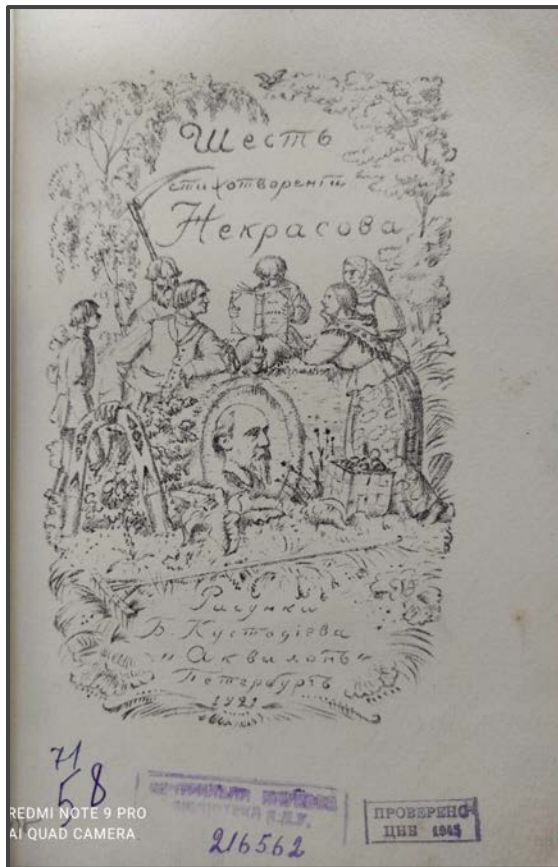 Шесть
стихотворенiй
Некрасова
Рисунки
Б. Кустодiева
"Аквилонъ"
Петербургъ
71
58
REDMI NOTE 9 PRO
AI QUAD CAMERA
216562
ПРОВЕРЕНО
ЦНБ 1945